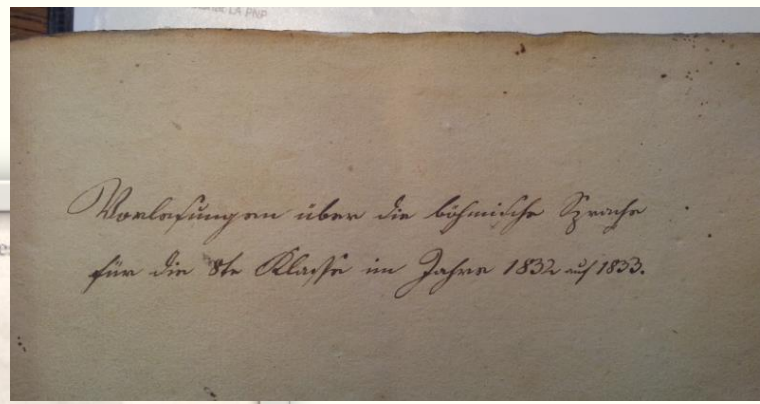 LA PNP
Vorlesungen über die böhmische Sprache
für die 8te Klasse im Jahre 1832 auf 1833.